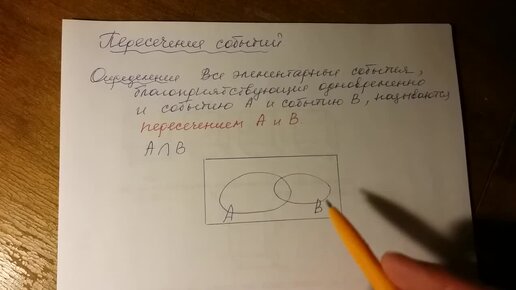 Пересечение событий
Определение Все элементарные события,
благоприятствующие одновременно
и событию А и событию В, называются
пересечением А и В
А∩В
А В